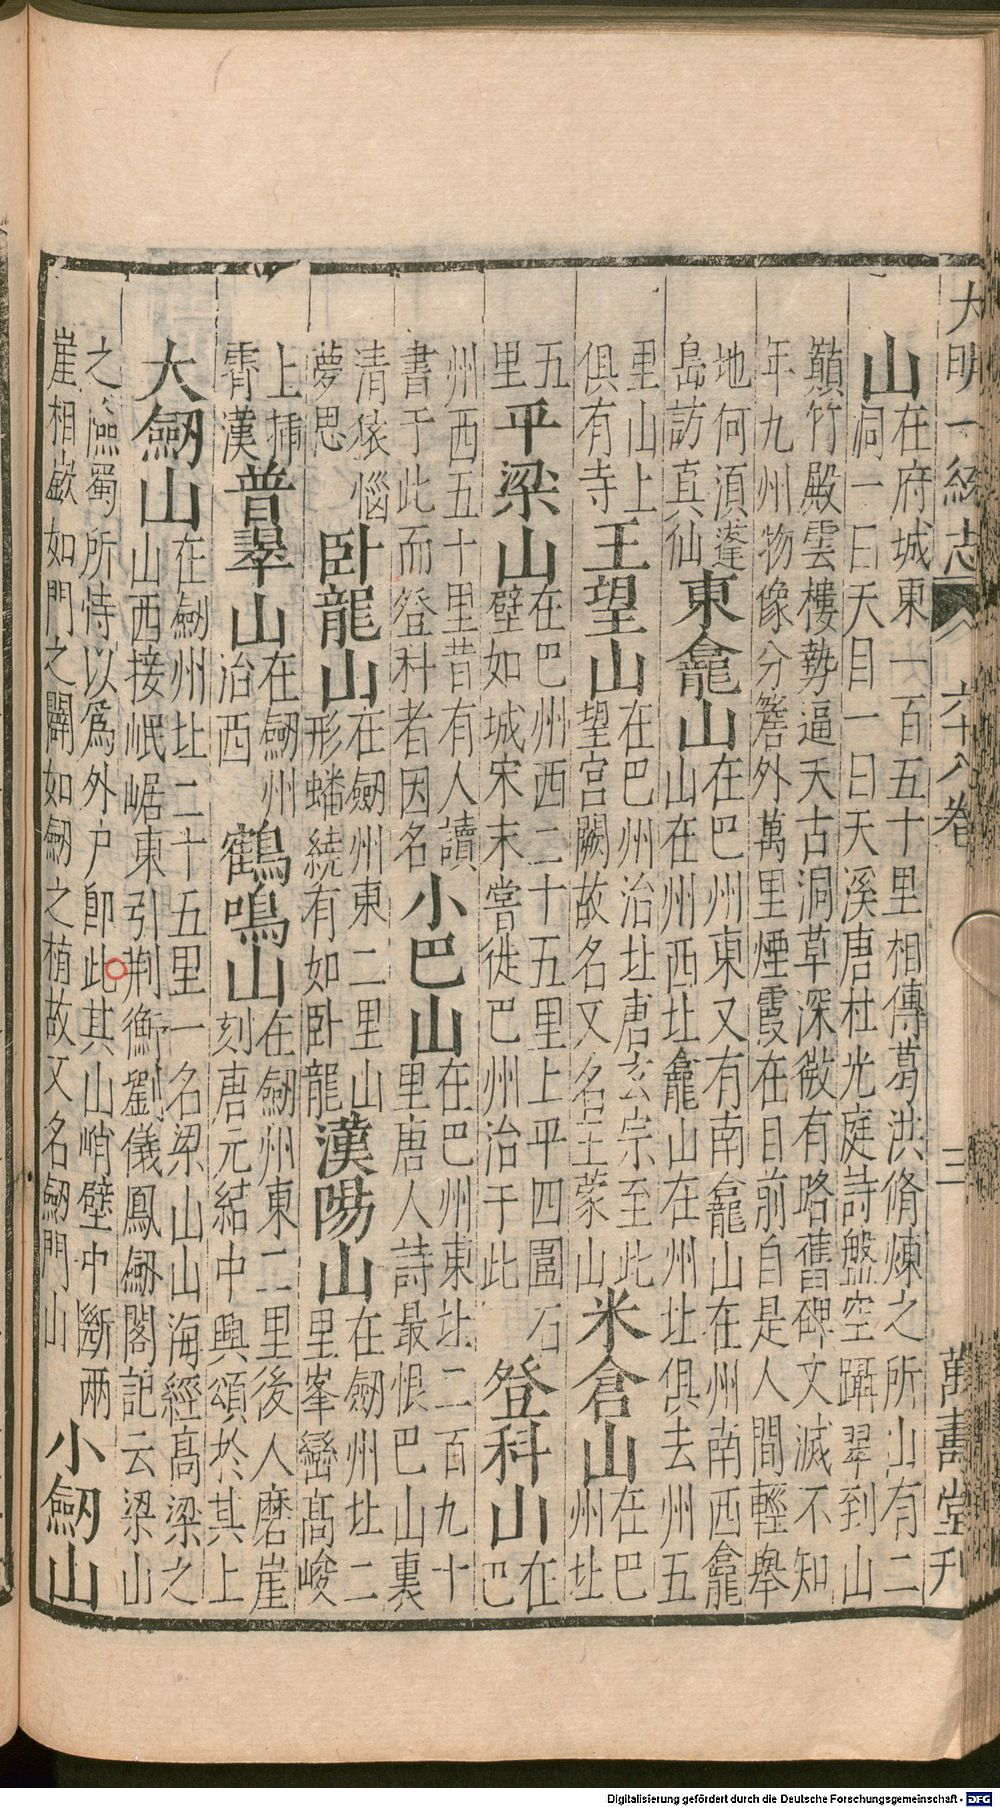 大明一統志 六十八卷 三 萬壽堂刊
山 在府城東一百五十里相傳葛洪脩煉之所山有二
洞一曰天目一曰天溪唐杜光庭詩盤空躡翠到山
巔竹殿雲樓勢逼天古洞草深微有路舊碑文滅不知
年九州物像分簷外萬里煙霞在目前自是人間輕舉
地何湏蓬
島訪真仙
東龕山
在巴州東又有南龕山在州南西龕
山在州西北龕山在州北俱去州五
里山上
俱有寺
王望山
在巴州治北唐玄宗至此
望宮闕故名又名王蒙山
米倉山
在巴
州北
五
里
平梁山
在巴州西二十五里上平四圍石
壁如城宋末嘗徙巴州治于此
登科山
在
巴
州西五十里昔有人讀
書于此而登科者因名
小巴山
在巴州東北二百九十
里唐人詩最恨巴山裏
清猿惱
夢思
卧龍山
在劒州東二里山
形蟠繞有如卧龍
漢陽山
在劒州北二
里峯巒髙峻
上揷
霄漢
普翠山
在劒州
治西
鶴鳴山
在劒州東二里後人磨崖
刻唐元結中興頌於其上
大劒山
在劒州北二十五里一名梁山山海經髙梁之
山西接岷崌東引荆衡劉儀鳳劒閣記云梁山
之險蜀所恃以爲外户即此其山峭壁中斷兩
崖相嶔如門之闢如劒之植故又名劒門山
小劒山
Digitalisierung gefördert durch die Deutsche Forschungsgemeinschaft - DFG